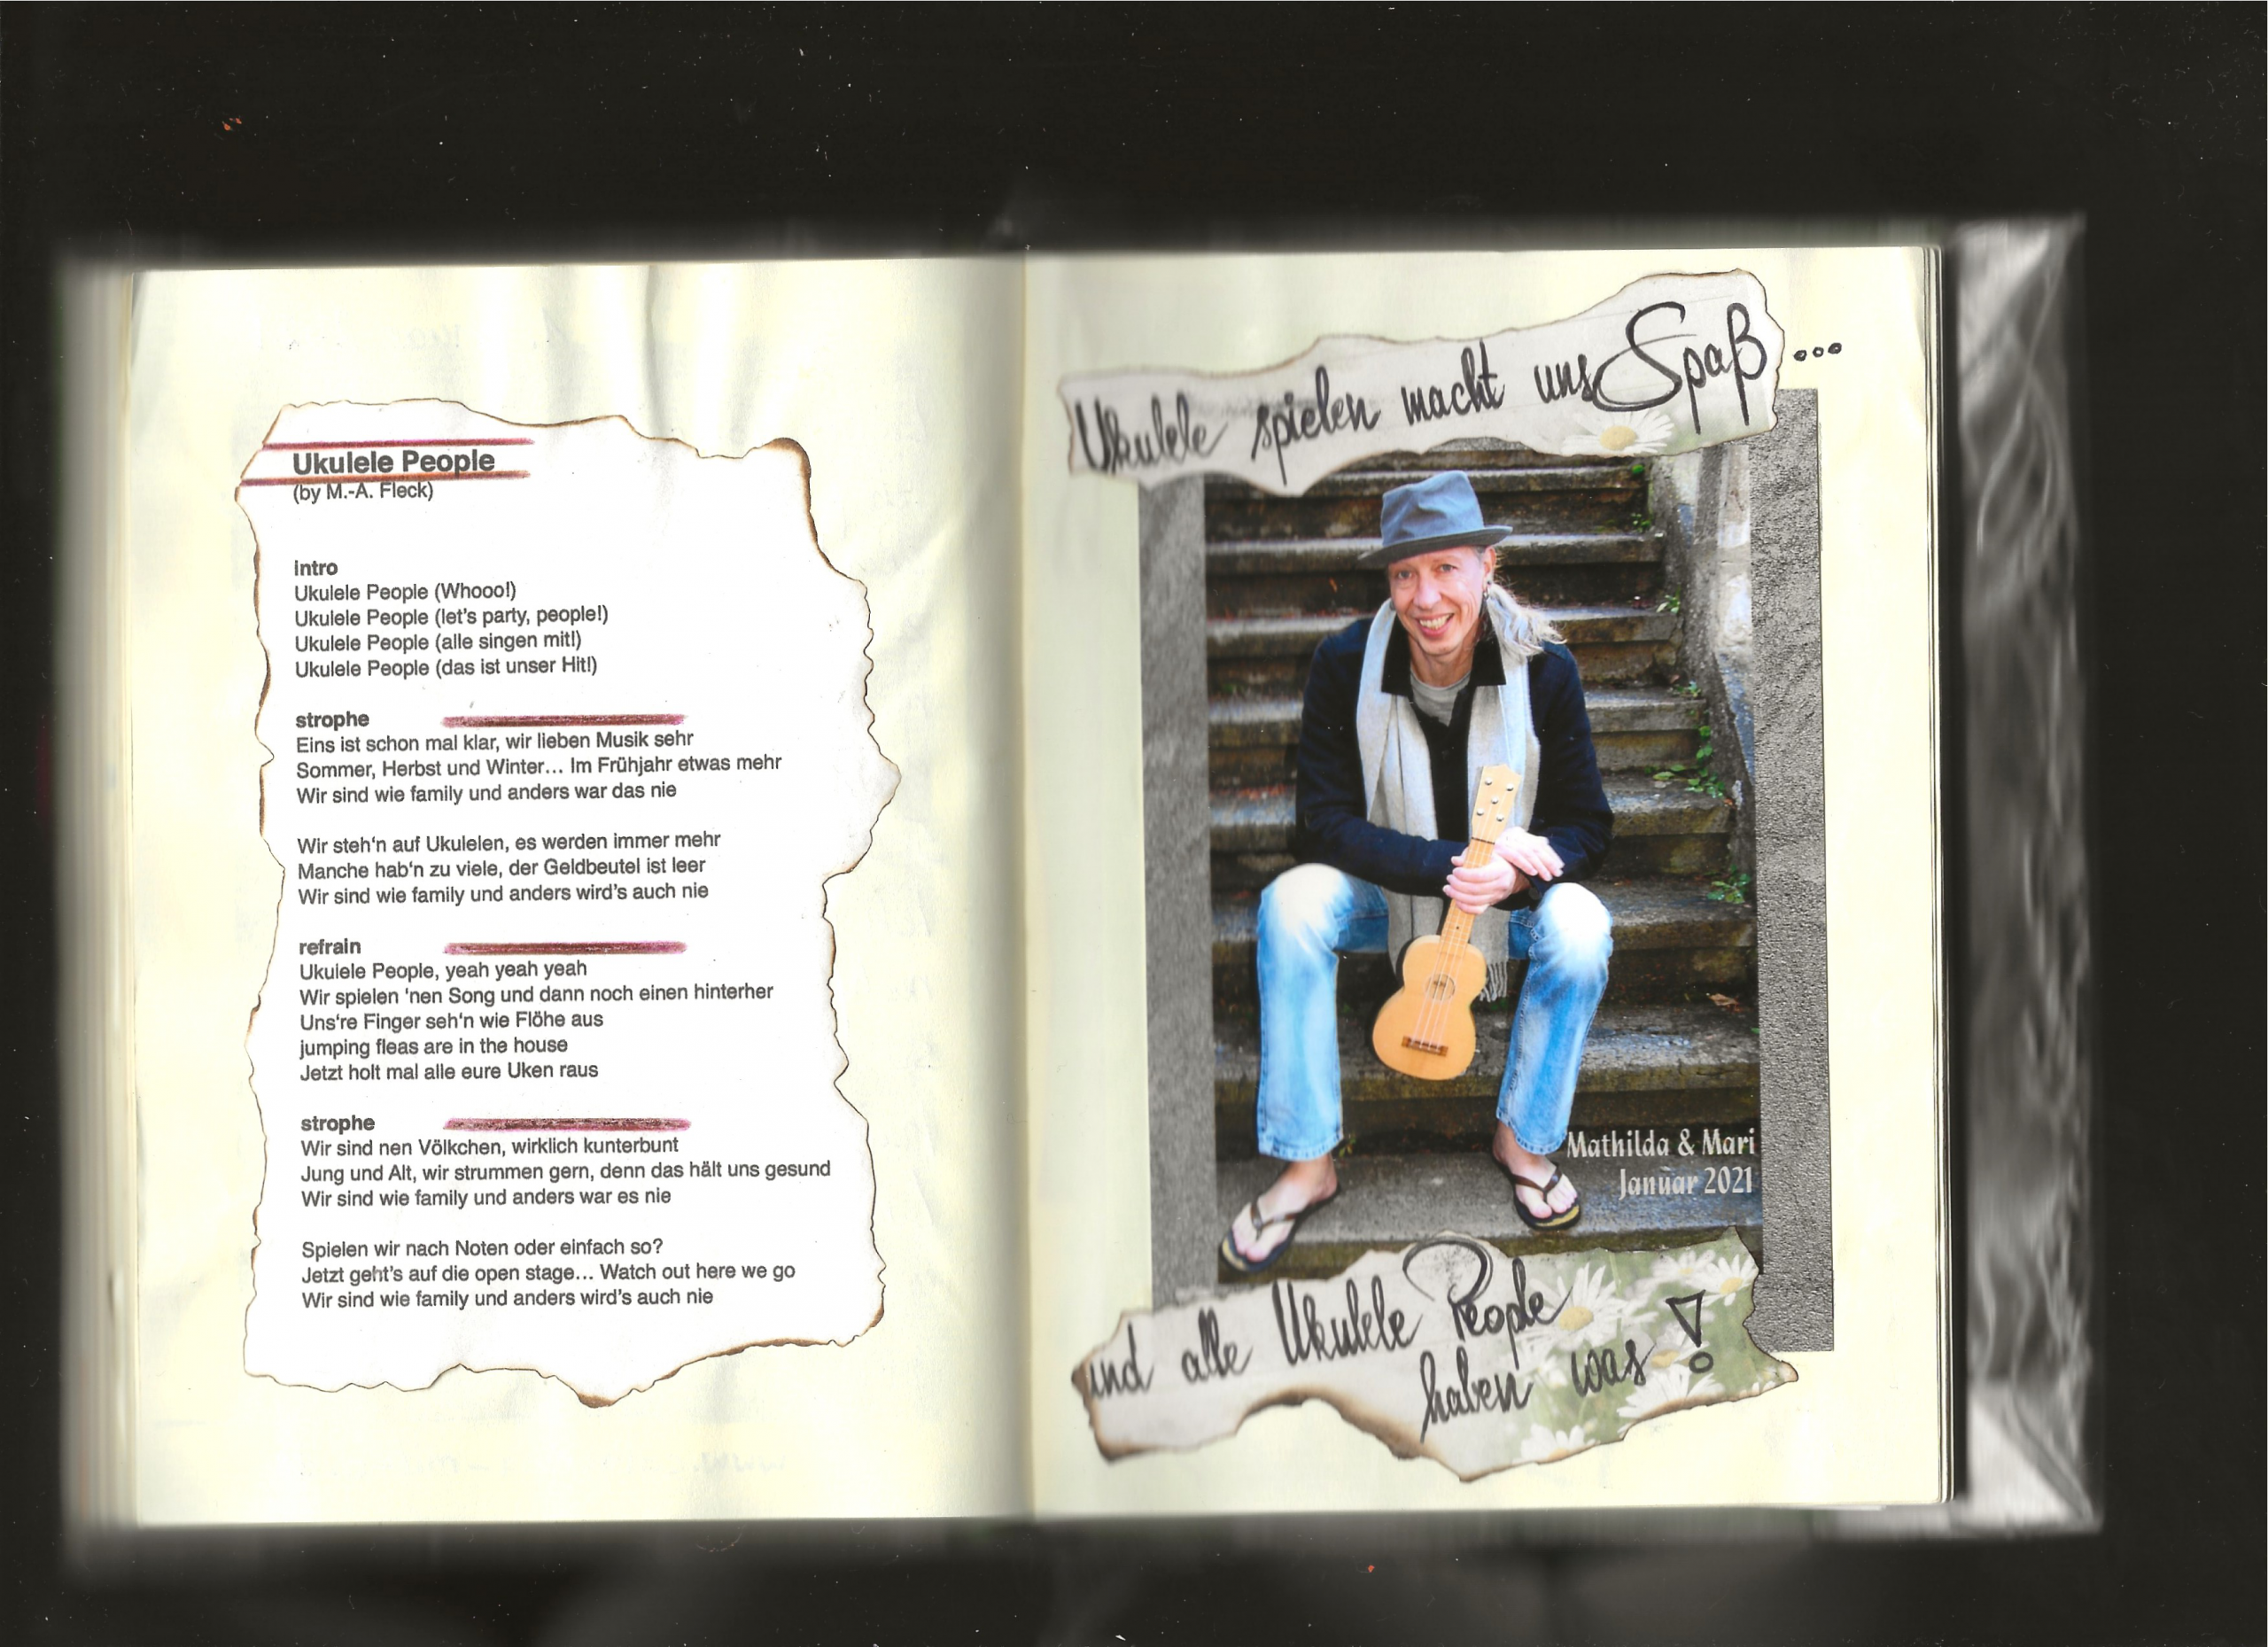 Ukulele People
(by M.-A. Fleck)
intro
Ukulele People (Whooo!)
Ukulele People (let's party, people!)
Ukulele People (alle singen mit!)
Ukulele People (das ist unser Hit!)
strophe
Eins ist schon mal klar, wir lieben Musik sehr
Sommer, Herbst und Winter… Im Frühjahr etwas mehr
Wir sind wie family und anders war das nie
Wir steh'n auf Ukulelen, es werden immer mehr
Manche hab'n zu viele, der Geldbeutel ist leer
Wir sind wie family und anders wird's auch nie
refrain
Ukulele People, yeah yeah yeah
Wir spielen 'nen Song und dann noch einen hinterher
Uns're Finger seh'n wie Flöhe aus
jumping fleas are in the house
Jetzt holt mal alle eure Uken raus
strophe
Wir sind nen Völkchen, wirklich kunterbunt
Jung und Alt, wir strummen gern, denn das hält uns gesund
Wir sind wie family und anders war es nie
Spielen wir nach Noten oder einfach so?
Jetzt geht's auf die open stage… Watch out here we go
Wir sind wie family und anders wird's auch nie
Ukulele spielen macht uns Spaß ...
Mathilda & Mari
Januar 2021
und alle Ukulele People
haben was !